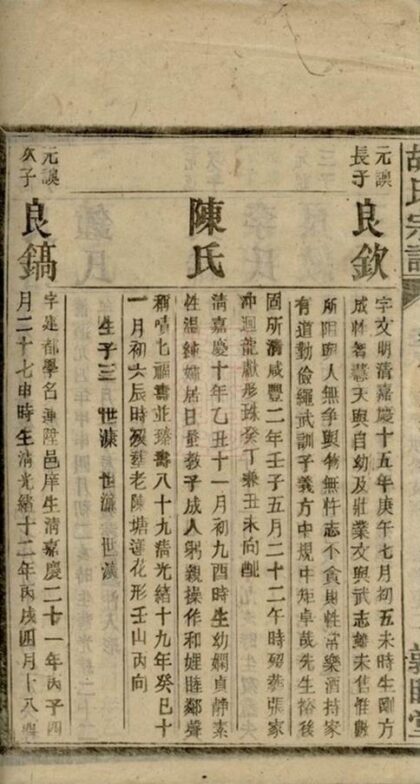 胡氏宗譜
元謨
長子
良欽
字文明清嘉慶十五年庚午七月初五未時生剛方
成性智慧天與自幼及壯業文與武志雖未售惟數
所阻與人無爭與物無忤志不貪則性常樂酒持家
有道勤儉繩武訓子義方中規中矩卓哉先生裕後
固所清咸豐二年壬子五月二十二午時歿葬張家
沖迴龍獻形珠癸丁兼丑未向配
陳氏
清嘉慶十年乙丑十一月初九酉時生幼嫻貞靜素
性溫純婦居日量教子成人躬親操作和娌睦鄰聲
稱嘖七福壽並臻壽八十九清光緒十九年癸巳十
一月初六辰時歿葬老陳塘蓮花形壬山丙向
生子三 世漾 世濂 世漢
元謨
次子
良鎬
字建都學名兼陞邑庠生清嘉慶二十一年丙子四
月二十七申時生清光緒十二年丙戌四月十八